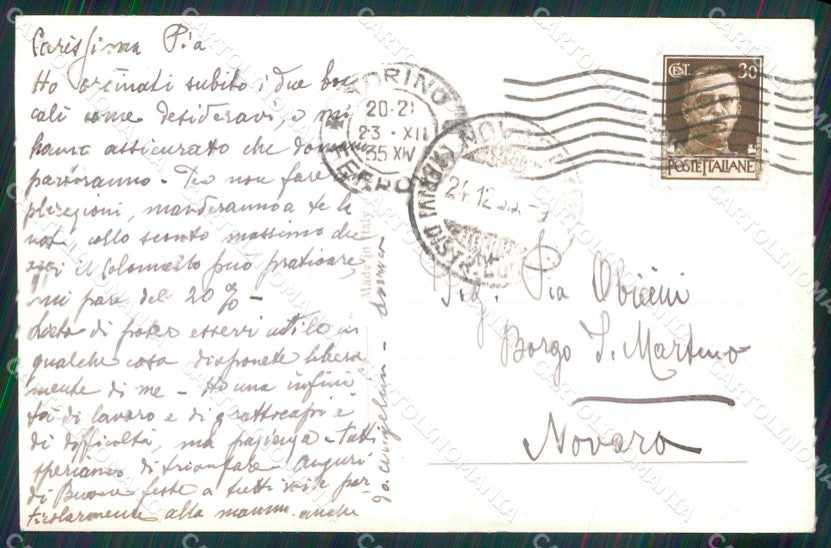 Carissima Pia
Ho ordinati subito i due boc
cali come desideravi, e mi
hanno assicurato che domani
partiranno - Per non fare
manderanno a te la
nota collo sconto massimo che
il può praticare,
mi pare del 20 % -
Lieta di poter esservi utile in
qualche cosa disponete libera
mente di me - Ho una infini
tà di lavoro e di grattacapi e
di difficoltà, ma pazienza - tutti
speriamo di trionfare auguri
di Buone feste a tutti voi e par
ticolarmente alla mamma anche
da
Made in Italy
TORINO
20-21
23 · XII
35 XIV
NOVARA
24.12.35
ARRIVI
CENT. 30
POSTE ITALIANE
Sig. Pia Obicini
Borgo S. Martino
Novara
CARTOLINOMANIA